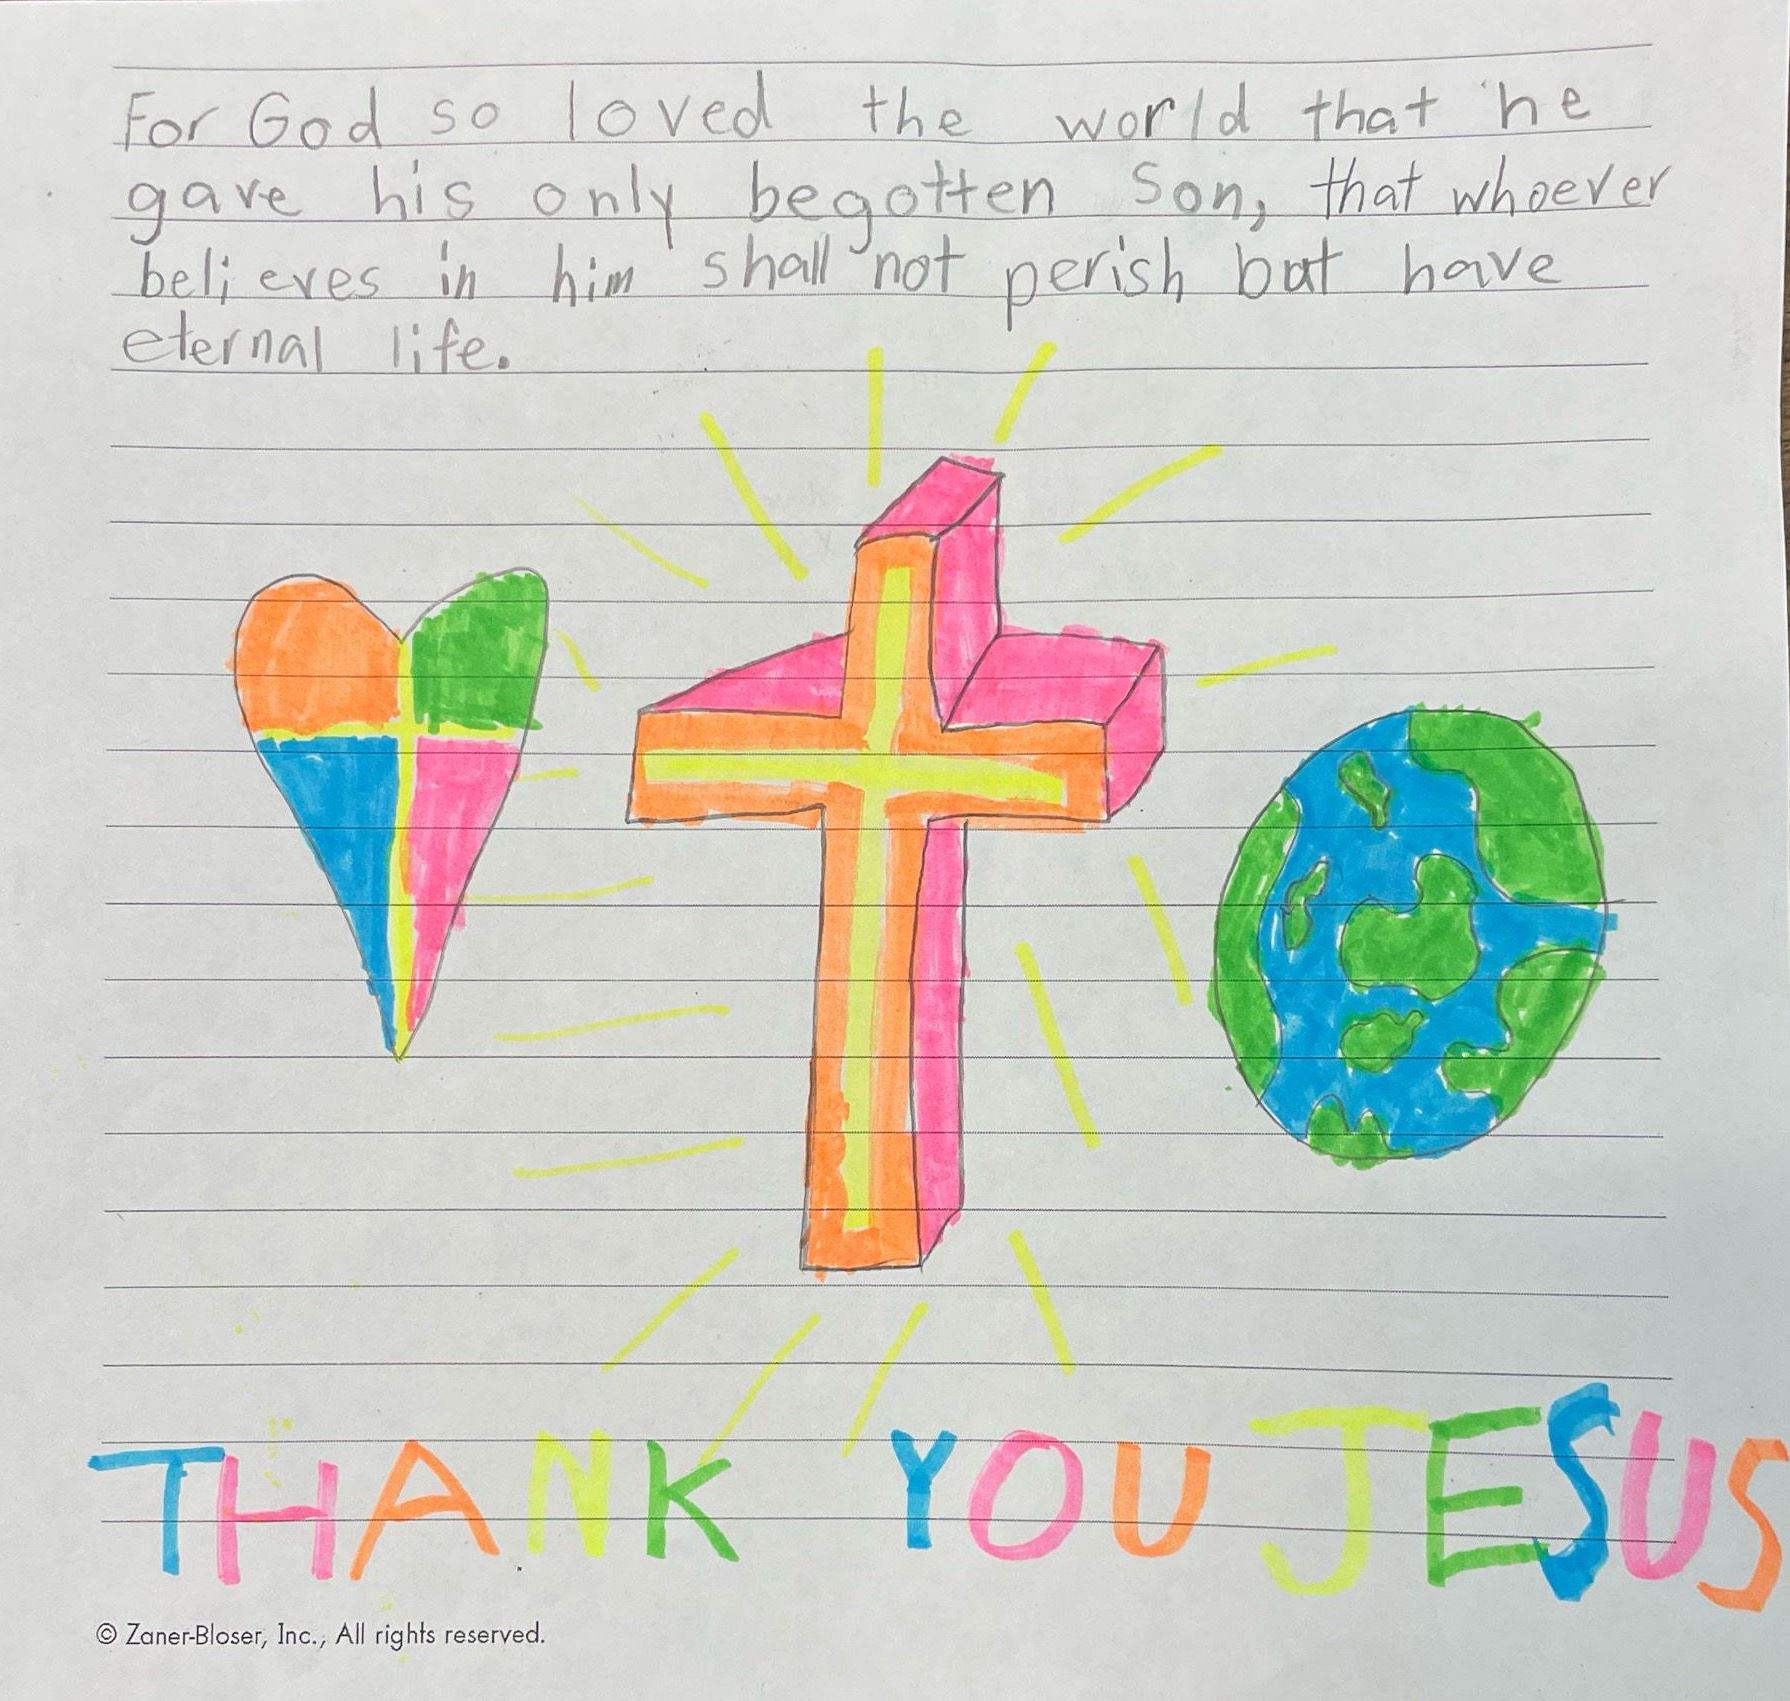 For God so loved the world that he
gave his only begotten Son, that whoever
believes in him shall not perish but have
eternal life.
THANK YOU JESUS
© Zaner-Bloser, Inc., All rights reserved.